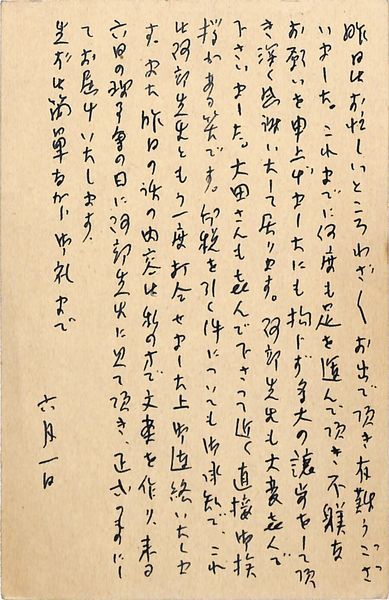 昨日はお忙しいところわざ〳〵お出で頂き有難うござ
いました。これまでに何度も足を運んで頂き不躾な
お願いを申上げましたにも拘らず多大の譲歩をして頂
き深く感謝いたして居ります。阿部先生も大変喜んで
下さいました。太田さんも喜んで下さって近く直接御挨
拶がある筈です。印税を引く件についても御承知で、これ
は阿部先生ともう一度打合せました上御連絡いたしま
す。また昨日の話の内容は私の方で文書を作り、来る
六日の理事会の日に阿部先生に見て頂き、正式のものにし
てお届けいたします。
先ずは簡単ながら御礼まで
六月一日